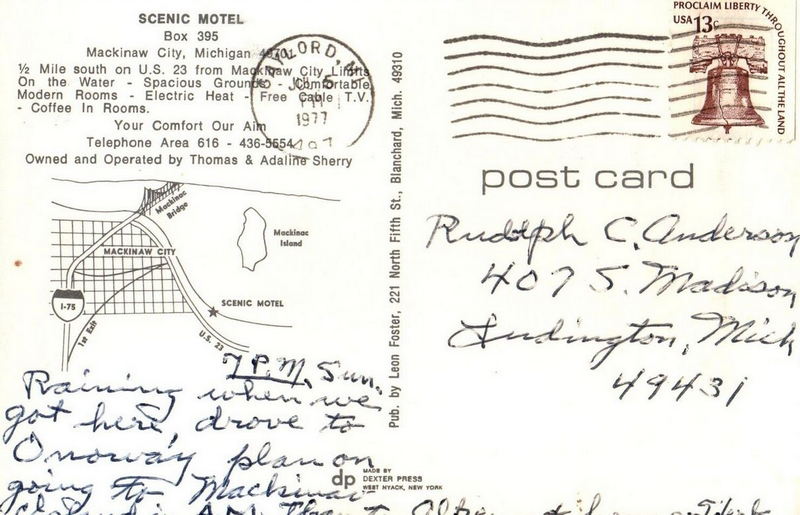 SCENIC MOTEL
Box 395
Mackinaw City, Michigan 49701
½ Mile south on U.S. 23 from Mackinaw City Limits
On the Water - Spacious Grounds - Comfortable
Modern Rooms - Electric Heat - Free Cable T.V.
- Coffee In Rooms.
Your Comfort Our Aim
Telephone Area 616 - 436-5554
Owned and Operated by Thomas & Adaline Sherry
GAYLORD, MI
PM
1977
497
Mackinac
Bridge
Mackinac
Island
MACKINAW CITY
SCENIC MOTEL
I-75
1st Exit
U.S. 23
7 P.M. Sun.
Raining when we
got here, drove to
Onoway plan on
going to Mackinac
Island in A.M.
Pub. by Leon Foster, 221 North Fifth St., Blanchard, Mich. 49310
dp
MADE BY
DEXTER PRESS
WEST NYACK, NEW YORK
PROCLAIM LIBERTY THROUGHOUT ALL THE LAND
USA 13c
post card
Rudolph C. Anderson
407 S. Madison
Ludington, Mich
49431